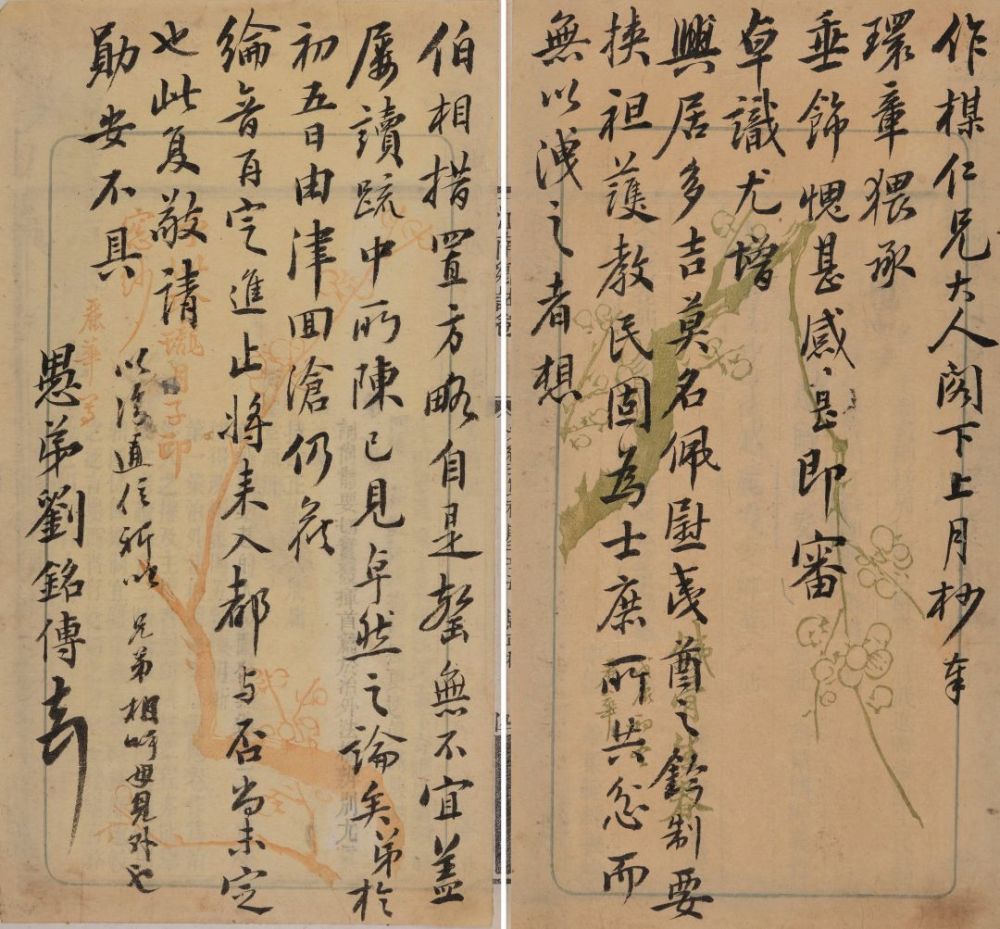 作楳仁兄大人阁下上月杪奉
環章猥承
垂飾愧甚感〻是即審
卓識尤增
興居多吉莫名佩慰夷酋之鈐制要
挾袒護教民固為士庶所共忿而
無以洩之者想
伯相措置方略自是罄無不宜蓋
屢讀疏中所陳已見卓然之論矣弟於
初五日由津回滄仍候
綸音再定進止將来入都与否尚未定
也此复敬請
勛安不具
愚弟劉銘傳
以後通信祈以兄弟相呼毋見外也